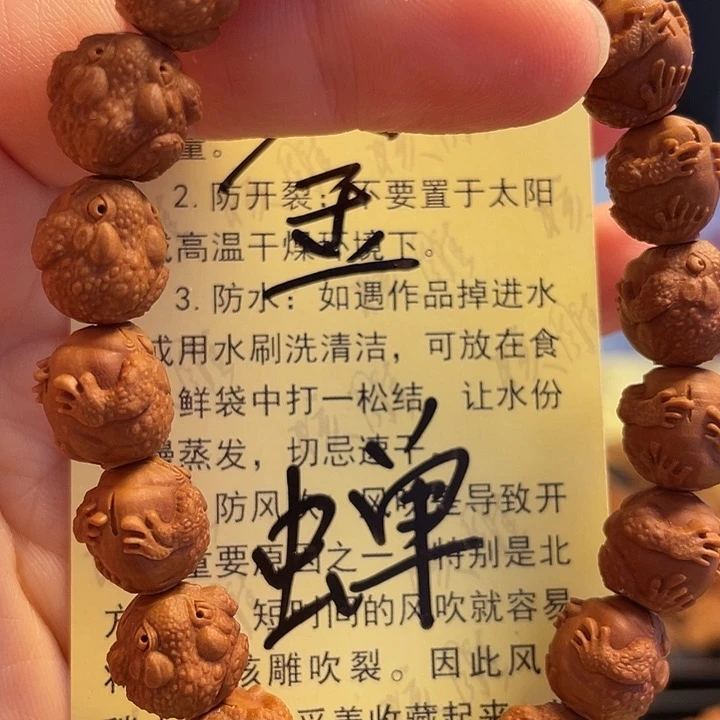 量。
2. 防开裂：不要置于太阳
高温干燥环境下。
3. 防水：如遇作品掉进水
或用水刷洗清洁，可放在食
鲜袋中打一松结，让水份
慢蒸发，切忌速干
防风吹 风吹是导致开
重要原因之一 特别是北
方 短时间的风吹就容易
核雕吹裂。因此风
妥善收藏起来
金
蝉